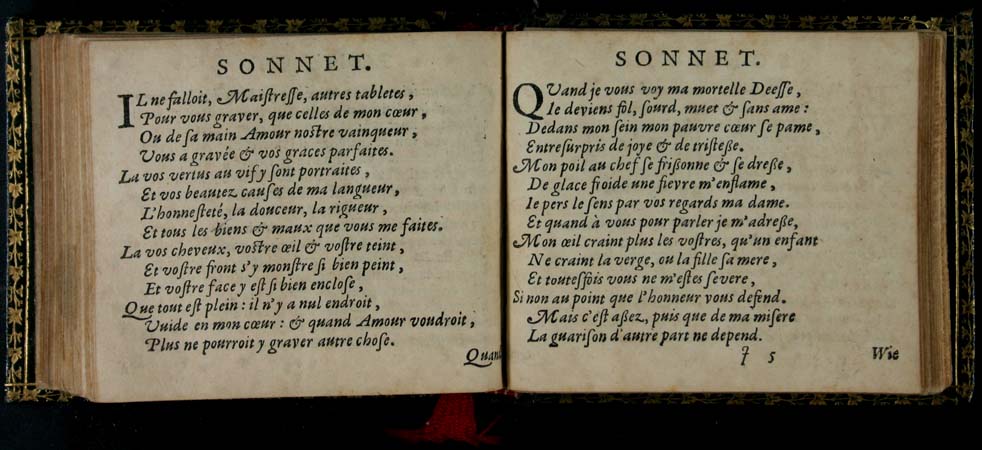 SONNET.
IL ne falloit, Maiſtreſſe, autres tabletes,
Pour vous graver, que celles de mon cœur,
Ou de ſa main Amour noſtre vainqueur,
Vous a gravée & vos graces parfaites.
La vos vertus au vif y ſont portraites,
Et vos beautez cauſes de ma langueur,
L'honneſteté, la douceur, la rigueur,
Et tous les biens & maux que vous me faites.
La vos cheveux, voſtre œil & voſtre teint,
Et voſtre front s'y monſtre ſi bien peint,
Et voſtre face y eſt ſi bien encloſe,
Que tout eſt plein: il n'y a nul endroit,
Vuide en mon cœur: & quand Amour voudroit,
Plus ne pourroit y graver autre choſe.
Quand
SONNET.
QVand je vous voy ma mortelle Deeſſe,
Ie deviens fol, ſourd, muet & ſans ame:
Dedans mon ſein mon pauvre cœur ſe pame,
Entreſurpris de joye & de triſteße.
Mon poil au chef ſe frißonne & ſe dreße,
De glace froide une fievre m'enflame,
Ie pers le ſens par vos regards ma dame.
Et quand à vous pour parler je m'adreße,
Mon œil craint plus les voſtres, qu'un enfant
Ne craint la verge, ou la fille ſa mere,
Et touteſfois vous ne m'eſtes ſevere,
Si non au point que l'honneur vous defend.
Mais c'eſt aßez, puis que de ma miſere
La guariſon d'autre part ne depend.
5
Wie